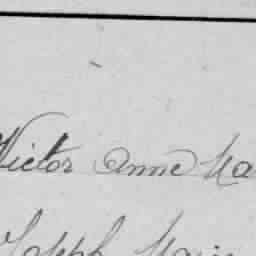 Victor Anne Ma
Joseph Marie